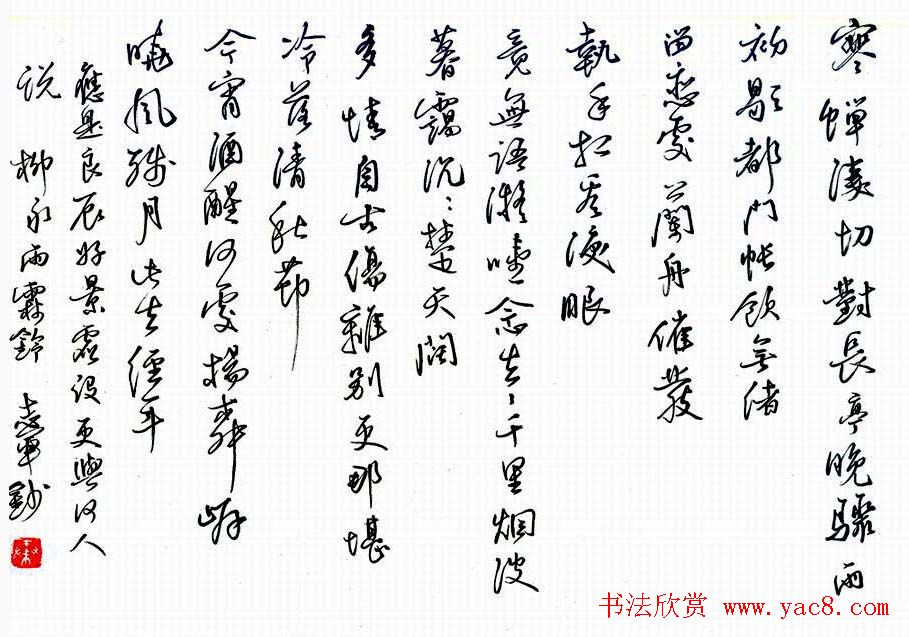 寒蟬淒切對長亭晚驟雨
初歇都門帳飲無緒
留戀處蘭舟催發
執手相看淚眼
竟無語凝噎念去々千里烟波
暮靄沉々楚天闊
多情自古傷離別更那堪
冷落清秋節
今宵酒醒何處楊柳岸
曉風殘月此去經年
應是良辰好景虛設更與何人
说 柳永雨霖鈴 志軍鈔
书法欣赏 www.yac8.com